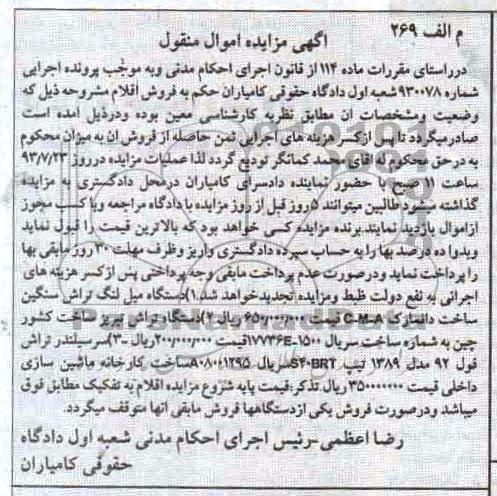 م الف ۲۶۹
آگهی مزایده اموال منقول
درراستای مقررات ماده ۱۱۴ از قانون اجرای احکام مدنی وبه موجب پرونده اجرایی
شماره ۹۳۰۰۷۸ شعبه اول دادگاه حقوقی کامیاران حکم به فروش اقلام مشروحه ذیل که
وضعیت ومشخصات آن مطابق نظریه کارشناسی معین بوده ودرذیل آمده است
صادرمیگردد تا پس ازکسر هزینه های اجرایی ثمن حاصله از فروش آن به میزان محکوم
به درحق محکوم له آقای محمد کمانگر تودیع گردد لذا عملیات مزایده درروز ۹۳/۷/۲۳
ساعت ۱۱ صبح با حضور نماینده دادسرای کامیاران درمحل دادگستری به مزایده
گذاشته میشود طالبین میتوانند ۵ روز قبل از روز مزایده با دادگاه مراجعه وبا کسب مجوز
ازاموال بازدید نمایند برنده مزایده کسی خواهد بود که بالاترین قیمت را قبول نماید
وبدوا ده درصد بها را به حساب سپرده دادگستری واریز وظرف مهلت ۳۰ روز مابقی بها
را پرداخت نماید ودرصورت عدم پرداخت مابقی وجه پرداختی پس ازکسر هزینه های
اجرائی به نفع دولت ضبط ومزایده تجدیدخواهد شد.۱)دستگاه میل لنگ تراش سنگین
ساخت دانمارک C-M-A قیمت ۶۵۰/۰۰۰/۰۰۰ ریال ۲)دستگاه تراش تبریز ساخت کشور
چین به شماره ساخت سریال ۱۵۰۰-۱۷۷۳۶E قیمت ۲۰۰/۰۰۰/۰۰۰ ریال ۳-)سرسیلندر تراش
فول ۹۲ مدل ۱۳۸۹ تیپ S۴۰BRT سریال ۸۰۸۰۱۲۹۵ ساخت کارخانه ماشین سازی
داخلی قیمت ۳۵۰۰۰۰۰۰۰ ریال تذکر:قیمت پایه شروع مزایده اقلام به تفکیک مطابق فوق
میباشد ودرصورت فروش یکی ازدستگاهها فروش مابقی آنها متوقف میگردد.
رضا اعظمی-رئیس اجرای احکام مدنی شعبه اول دادگاه
حقوقی کامیاران